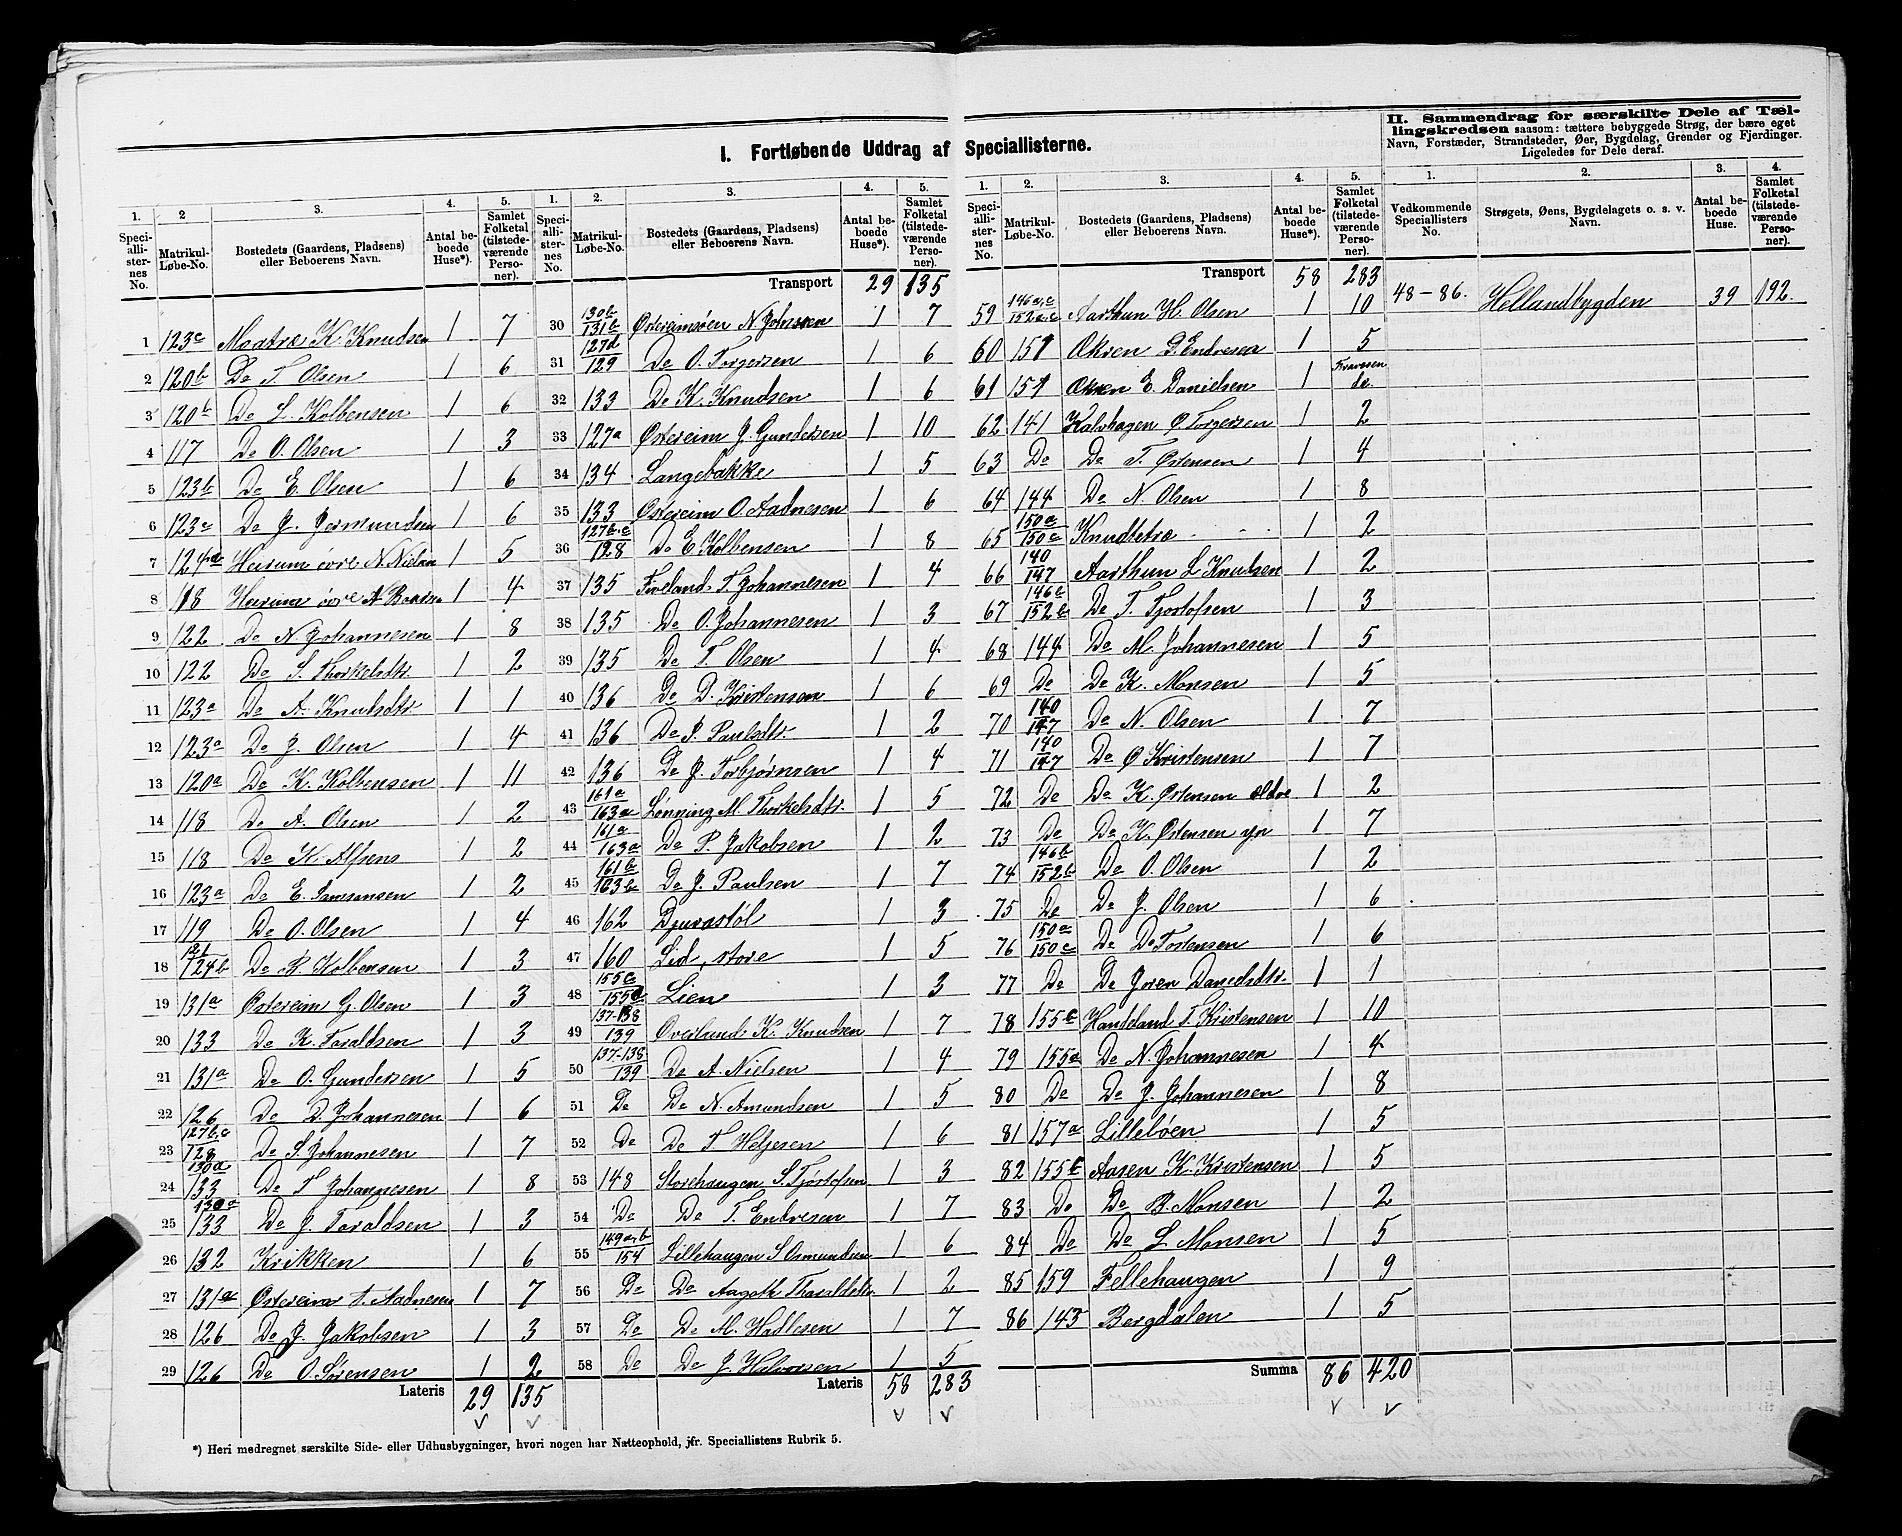 I. Fortløbende Uddrag af Speciallisterne.
II. Sammendrag for særskilte Dele af Tællingskredsen saasom: tættere bebyggede Strøg, der bære eget
Navn, Forstæder, Strandsteder, Øer, Bygdelag, Grender og Fjerdinger.
Ligeledes for Dele deraf.
1. 2 3. 4. 5. 1. 2. 3. 4. 5. 1. 2. 3. 4. 5. 1. 2. 3. 4.
Speciallisternes No. Matrikul-Løbe-No. Bostedets (Gaardens, Pladsens) eller Beboerens Navn. Antal beboede Huse*). Samlet Folketal (tilstedeværende Personer).
Speciallisternes No. Matrikul-Løbe-No. Bostedets (Gaardens, Pladsens) eller Beboerens Navn. Antal beboede Huse*). Samlet Folketal (tilstedeværende Personer).
Speciallisternes No. Matrikul-Løbe-No. Bostedets (Gaardens, Pladsens) eller Beboerens Navn. Antal beboede Huse*). Samlet Folketal (tilstedeværende Personer).
Vedkommende Speciallisters No. Strøgets, Øens, Bygdelagets o. s. v. Navn. Antal beboede Huse. Samlet Folketal (tilstedeværende Personer).
1 123c Maatræ K. Knudsen 1 7
2 120b Do T. Olsen 1 6
3 120b Do L. Kolbensen 1 6
4 117 Do O. Olsen 1 3
5 123b Do E. Olsen 1 6
6 123c Do J. Jermundsen 1 6
7 124a Heirum øvre N. Nielsen 1 5
8 118 Heirum øvre A 1 4
9 122 Do N. Johannesen 1 8
10 122 Do S. Thorkelsdtr. 1 2
11 123a Do A. Knutsdtr. 1 1
12 123a Do J. Olsen 1 4
13 120a Do K. Kolbensen 1 11
14 118 Do A. Olsen 1 2
15 118 Do K. Alfsens 1 2
16 123a Do E. Samsonsen 1 2
17 119 Do O. Olsen 1 4
18 124b Do Kolbensen 1 3
19 131a Østereim G. Olsen 1 3
20 133 Do K. Taraldsen 1 3
21 131a Do O. Gundersen 1 5
22 126 Do D. Johannesen 1 6
23 127b,c 128 Do S. Johannesen 1 7
24 130a 133 Do T. Johannesen 1 8
25 130a 133 Do J. Taraldsen 1 3
26 132 Krikken 1 6
27 131a Østereim Aadnesen 1 7
28 126 Do J. Jakobsen 1 3
29 126 Do O. Sørensen 1 2
Lateris 29 135
Transport 29 135
30 130b 131b Østereimsøen N. Johnsen 1 7
31 127d 129 Do O. Torgersen 1 6
32 133 Do K. Knudsen 1 6
33 127a Østereim J. Gundersen 1 10
34 134 Langebakke 1 5
35 133 Østereim O. Aadnesen 1 6
36 127b.c 128 Do E. Kolbensen 1 8
37 135 T. Johannesen 1 4
38 135 Do O. Johannesen 1 3
39 135 Do T. Olsen 1 4
40 136 Do D. Kristensen 1 6
41 136 Do Paulsdtr. 1 2
42 136 Do J. Torbjørnsen 1 4
43 161a 163a Lønning M. Thorkelsdtr. 1 5
44 161a 163a Do P. Jakobsen 1 2
45 161b 163b Do J. Paulsen 1 7
46 162 Djuvastøl 1 3
47 160 Lid, store 1 5
48 155c 155d Lien 1 3
49 137-138 139 Overland K. Knudsen 1 7
50 137-138 139 Do A. Nielsen 1 4
51 Do Do N. Amundsen 1 5
52 Do Do T. Heljesen 1 6
53 148 Storehaugen S. Tjøstofsen 1 3
54 Do Do T. Endresen 1 7
55 149a,b 154 Lillehaugen S. Osmundsen 1 6
56 Do Do Aagoth Tharaldsdtr 1 2
57 Do Do M. Hadlesen 1 7
58 Do Do J. Halvorsen 1 5
Lateris 58 283
Transport 58 283
59 146a,c 152a,c Aarthun H. Olsen 1 10
60 151 Økren Endresen 1 5
61 151 Økren E. Danielsen 1 Fraværende.
62 141 Kalvhagen O. Torgersen 1 2
63 Do Do T. Østensen 1 4
64 144 Do N. Olsen 1 8
65 150a 150c Knudtetræ 1 2
66 140 147 Aarthun L. Knutsen 1 2
67 146b 152b Do T. Tjostofsen 1 3
68 144 Do M. Johannesen 1 5
69 Do Do K. Monsen 1 5
70 140 147 Do N. Olsen 1 7
71 140 147 Do O Kristensen 1 7
72 Do Do K. Østensen ældre 1 2
73 Do Do K. Østensen yn 1 7
74 146b 152b Do O. Olsen 1 2
75 Do Do J. Olsen 1 6
76 150a 150c Do D. Tostensen 1 6
77 Do Do Joren Danielsdtr. 1 1
78 155b Handeland T. Kristensen 1 10
79 155a Do N. Johannesen 1 4
80 Do Do J. Johannesen 1 8
81 157a Lilleløen 1 5
82 155b Aasen K. Kristensen 1 5
83 Do Do B. Monsen 1 2
84 Do Do L. Monsen 1 5
85 159 Fellehaugen 1 9
86 143 Bergdalen 1 5
Summa 86 420
48-86. Hellandbygden 39 192.
*) Heri medregnet særskilte Side- eller Udhusbygninger, hvori nogen har Natteophold, jfr. Speciallistens Rubrik 5.